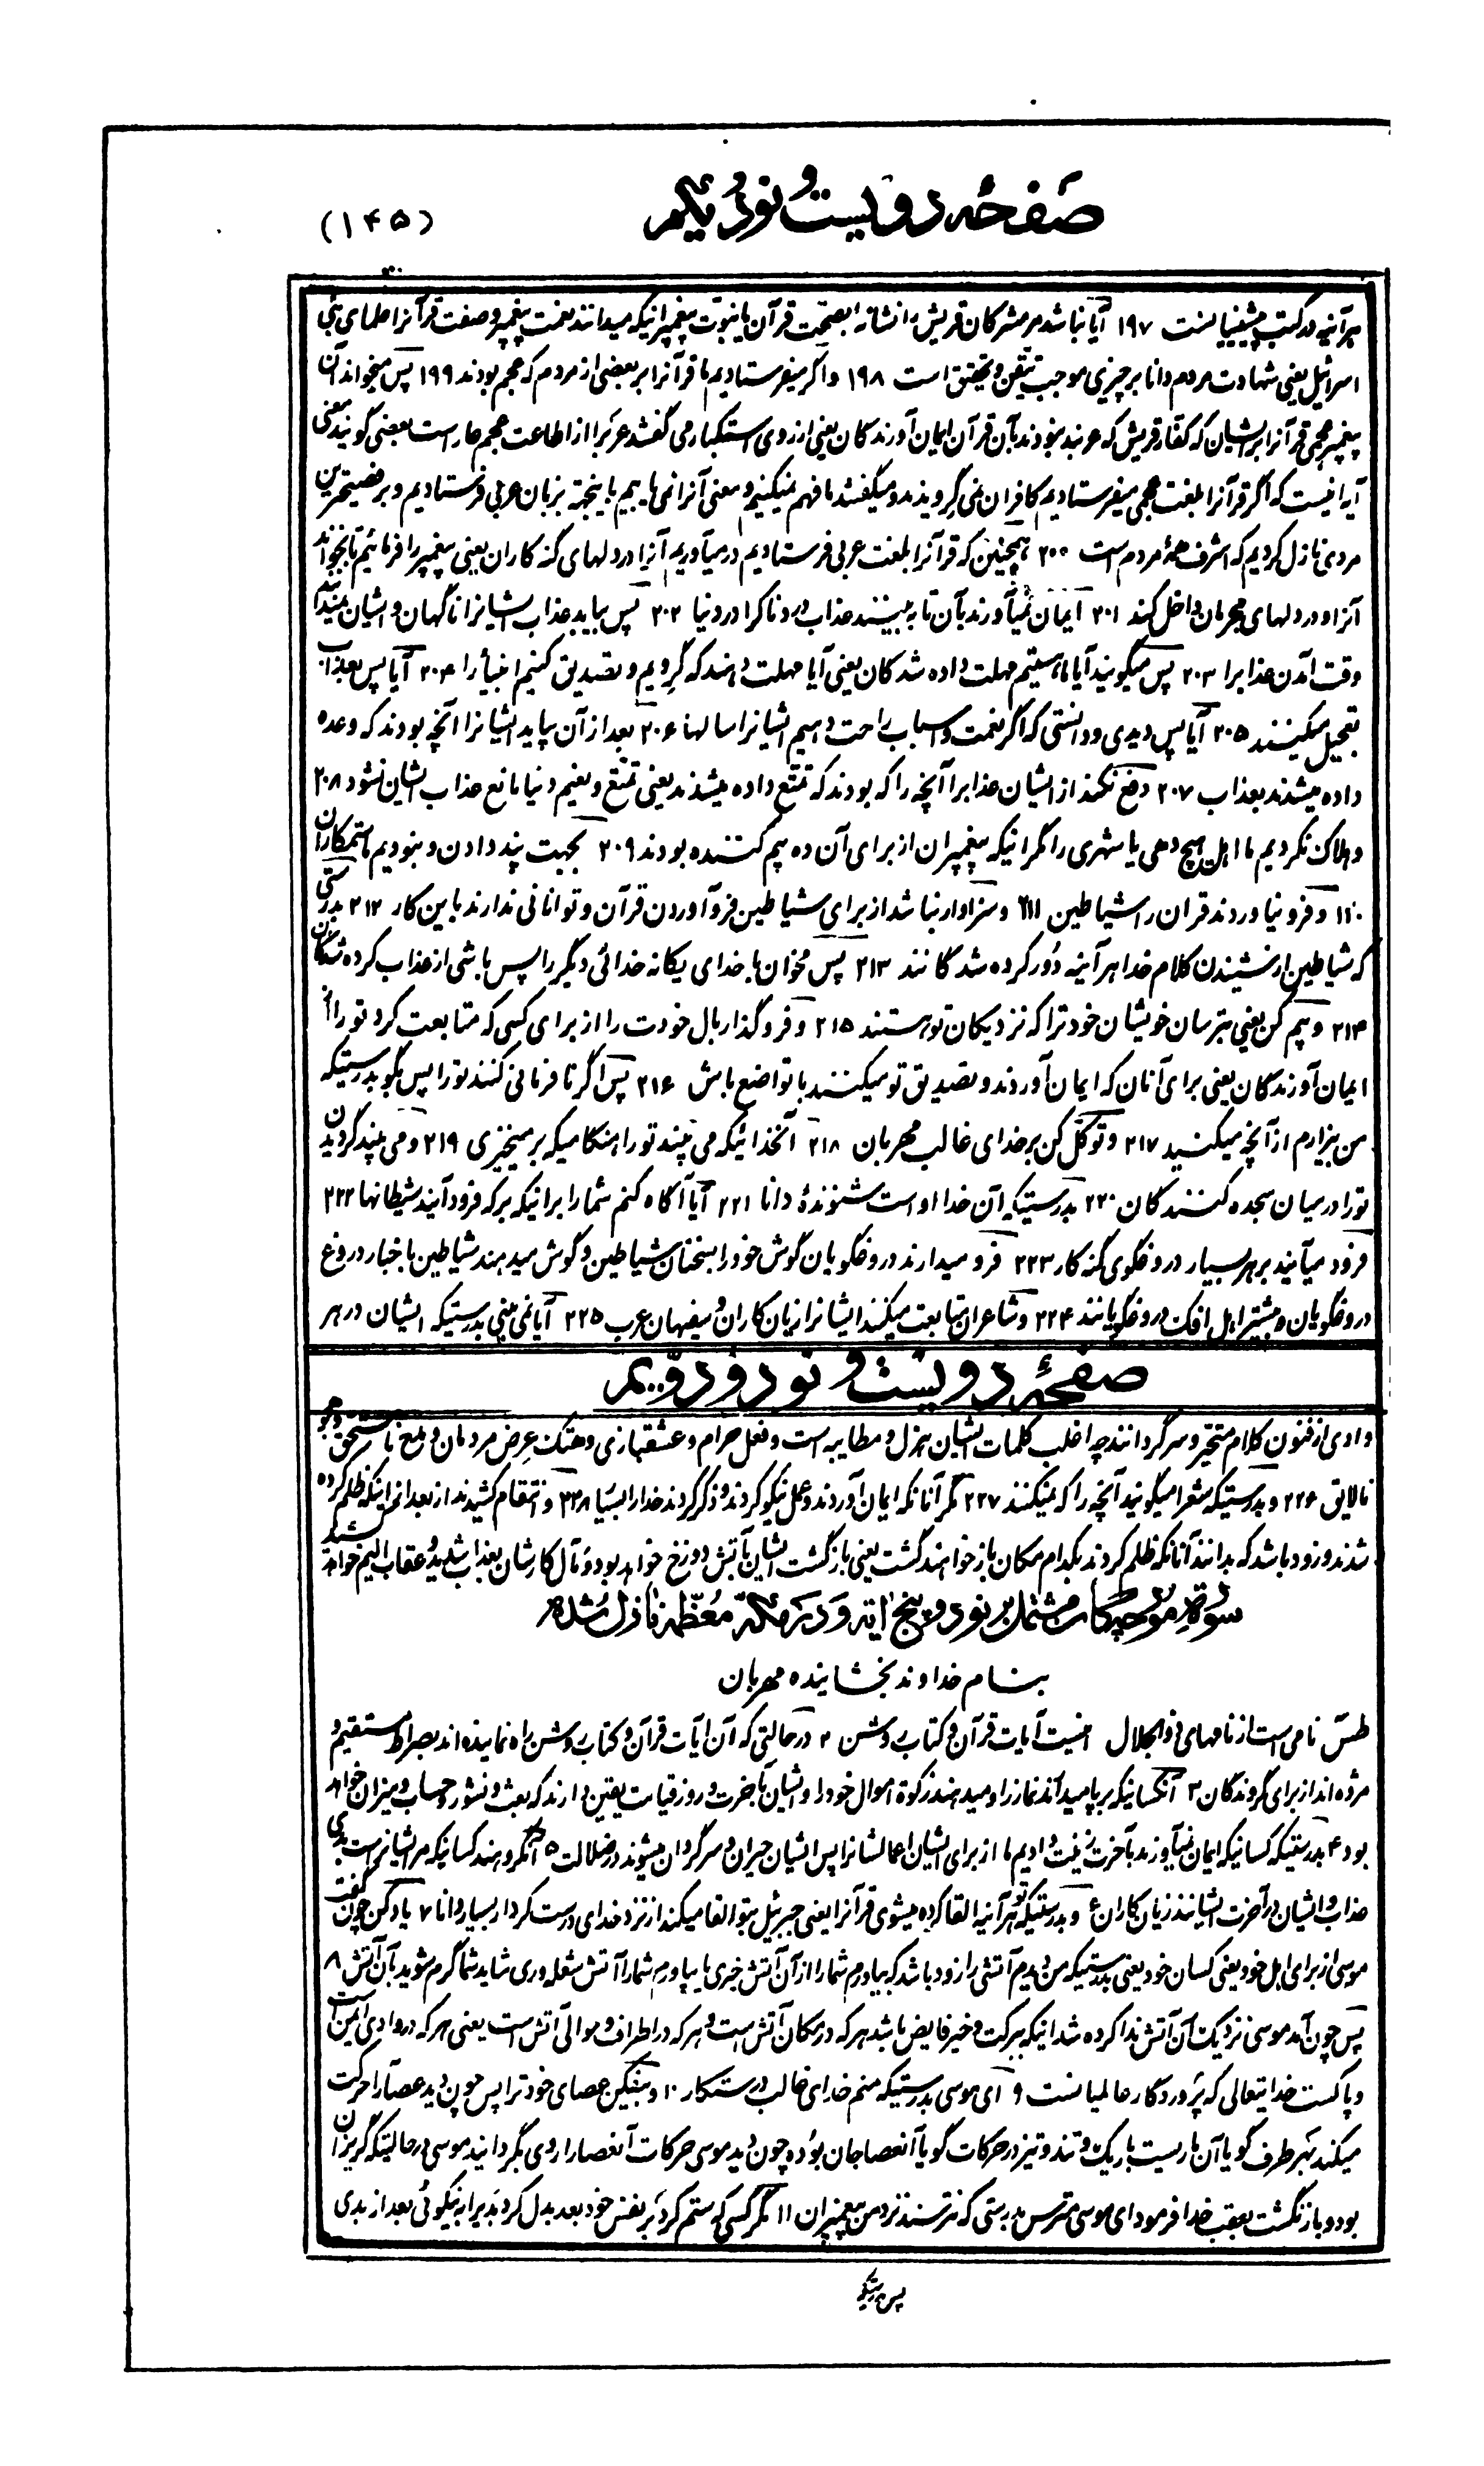 صفحه دویست و نود و یکم
(۱۴۵)
هرآینه در کتب پیشینیانست ۱۹۷ آیا نباشد مر مشرکان قریش را نشانه بصحت قرآن یا نبوت پیغمبر اینکه میدانند نعمت پیغمبر و صفت قرآنرا علمای بنی
اسرائیل یعنی شهادت مردم دانا بر چیزی موجب تیقن و تحقق است ۱۹۸ و اگر میفرستادیم ما قرآنرا بر بعضی از مردم که عجم بودند ۱۹۹ پس میخواند آن
پیغمبر عجمی قرآنرا بر ایشان که کفار قریش که عربند نبودند بآن قرآن ایمان آورندکان یعنی از روی استکبار می گفتند عرب را از اطاعت عجم عار است بعضی گویند معنی
آیه اینست که اگر قرآنرا بلغت عجمی میفرستادیم کافران نمی گرویدند و میگفتند ما فهم نمیکنیم و معنی آنرا نمی یابیم باینجهة بزبان عربی فرستادیم و بر فصیحترین
مردی نازل کردیم که اشرف همۀ مردم است ۲۰۰ همچنین که قرآنرا بلغت عربی فرستادیم درمیآوریم آنرا در دلهای گنه کاران یعنی پیغمبر را فرمائیم تا بخواند
آنرا و در دلهای مجرمان داخل کند ۲۰۱ ایمان نمیآورند بآن تا به بینند عذاب دردناکرا در دنیا ۲۰۲ پس بیاید عذاب ایشانرا ناگهان و ایشان نمیدانند
وقت آمدن عذابرا ۲۰۳ پس میگویند آیا ما هستیم مهلت داده شدکان یعنی آیا مهلت دهند که گرویم و تصدیق کنیم انبیأ را ۲۰۴ آیا پس بعذاب
تعجیل میکنند ۲۰۵ آیا پس دیدی و دانستی که اگر نعمت و اسباب راحت دهیم ایشانرا سالها ۲۰۶ بعد از آن بیاید ایشانرا آنچه بودند که وعده
داده میشدند بعذاب ۲۰۷ دفع نکند از ایشان عذابرا آنچه را که بودند که تمتع داده میشدند یعنی تمتع و نعیم دنیا مانع عذاب ایشان نشود ۲۰۸
و هلاک نکردیم ما اهل هیچ دهی یا شهری را مگر انیکه پیغمبران از برای آن ده بیم کننده بودند ۲۰۹ بجهت پند دادن و نبودیم ما ستمکاران
۲۱۰ و فرو نیاوردند قران را شیاطین ۲۱۱ و سزاوار نباشد از برای شیاطین فرو آوردن قرآن و توانائی ندارند باین کار ۲۱۲ بدرستی
که شیاطین از شنیدن کلام خدا هرآینه دور کرده شدگانند ۲۱۳ پس مخوان با خدای یگانه خدائی دیگر را پس باشی از عذاب کرده شدگان
۲۱۴ و بیم کن یعنی بترسان خویشان خود ترا که نزدیکان تو هستند ۲۱۵ و فروگذار بال خودت را از برای کسی که متابعت کرد تو را از
ایمان آورندکان یعنی برای آنان که ایمان آوردند و تصدیق تو میکنند با تواضع باش ۲۱۶ پس اگر نافرمانی کنند تو را پس بگو بدرستیکه
من بیزارم از آنچه میکنید ۲۱۷ و توکل کن بر خدای غالب مهربان ۲۱۸ آنخدائیکه می بیند تو را هنگامیکه برمیخیزی ۲۱۹ و می بیند گردیدن
تو را در میان سجده کنندگان ۲۲۰ بدرستیکه آن خدا او است شنوندۀ دانا ۲۲۱ آیا آگاه کنم شما را بر انیکه بر که فرود آیند شیطانها ۲۲۲
فرود میآیند بر هر بسیار دروغگوی گنه کار ۲۲۳ فرو میدارند دروغگویان گوش خود را بسخنان شیاطین و گوش میدهند شیاطین باخبار دروغ
دروغگویان و بیشتر اهل افک دروغگویانند ۲۲۴ و شاعران متابعت میکنند ایشانرا زیان کاران و سفیهان عرب ۲۲۵ آیا نمی بینی بدرستیکه ایشان در هر
صفحۀ دویست و نود و دویم
وادی از فنون کلام متحیر و سرگردانند چه اغلب کلمات ایشان هزل و مطایبه است و فعل حرام و عشقبازی و هتک عرض مردمان و مدح نامستحق و هجو
نالایق ۲۲۶ و بدرستیکه شعرا میگویند آنچه را که نمیکنند ۲۲۷ مگر آنانکه ایمان آوردند و عمل نیکو کردند و ذکر کردند خدا را بسیار ۲۲۸ و انتقام کشیدند از بعد از اینکه ظلم کرده
شدند و زود باشد که بدانند آنانکه ظلم کردند بکدام مکان باز خواهند گشت یعنی بازگشت ایشان بآتش دوزخ خواهد بود و مآل کارشان بعذاب شدید و عقاب الیم خواهد کشید
سورۀ مورچگان مشتمل بر نود و پنج ایه و در مکه معظمه نازل شده
بنام خداوند بخشاینده مهربان
طس نامی است از نامهای ذوالجلال اینست آیات قرآن و کتاب روشن ۲ در حالتی که آن آیات قرآن و کتاب روشن راه نماینده اند بصراط مستقیم و
مژده اند از برای گروندگان ۳ آنکسانیکه برپا میدارند نماز را و میدهند زکوة اموال خود را و ایشان بآخرت و روز قیامت یقین دارند که بعث و نشور و حساب و میزان خواهد
بود ۴ بدرستیکه کسانیکه ایمان نمیآورند بآخرت زینت دادیم ما از برای ایشان اعمالشانرا پس ایشان حیران و سرگردان میشوند در ضلالت ۵ آنگروهند کسانیکه مر ایشانراست بدی
عذاب و ایشان در آخرت ایشانند زیان کاران ۶ و بدرستیکه تو هرآینه القا کرده میشوی قرآنرا یعنی جبرئیل بتو القا میکند از نزد خدای درست کردار بسیار دانا ۷ یاد کن چون گفت
موسی از برای اهل خود یعنی کسان خود یعنی بدرستیکه من دیدم آتشی را زود باشد که بیاورم شما را از آن آتش خبری یا بیاورم شما را آتش شعله وری شاید شما گرم شوید بآن آتش ۸
پس چون آمد موسی نزدیک آن آتش ندا کرده شد اینکه ببرکت و خیر فایض باشد هر که در مکان آتش است و هر که در اطراف و حوالی آتش است یعنی هر که در وادی ایمن است
و پاکست خدایتعالی که پروردگار عالمیانست ۹ ای موسی بدرستیکه منم خدای غالب درستکار ۱۰ و بیفکن عصای خود ترا پس چون دید عصا را حرکت
میکند بهر طرف گویا آن ماریست باریک و تند و تیز در حرکات گویا آنعصا جان بوده چون دید موسی حرکات آنعصا را روی بگردانید موسی در حالتیکه گریزان
بود و باز نگشت بعقب خدا فرمود ای موسی مترس بدرستی که نترسند نزد من پیغمبران ۱۱ مگر کسی که ستم کرد بر نفس خود بعد بدل کرد بدیرا به نیکوئی بعد از بدی
پس بدرستیکه